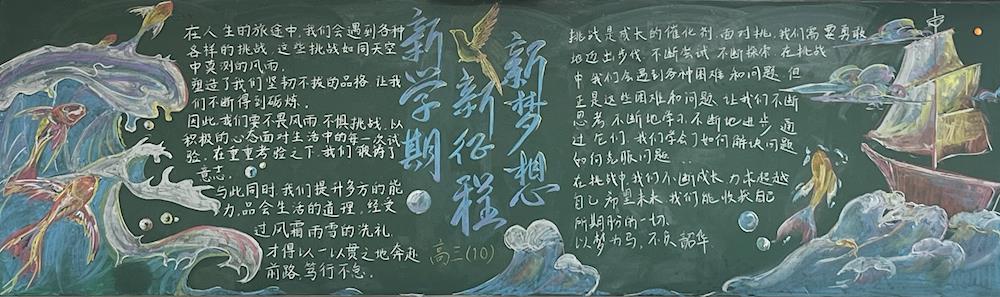 在人生的旅途中,我们会遇到各种
各样的挑战,这些挑战如同天空
中莫测的风雨,
塑造了我们坚韧不拔的品格,让我
们不断得到砺炼。
因此,我们要不畏风雨,不惧挑战,以
积极的心态面对生活中的每一次试
验。在重重考验之下,我们被铸了
意志。
与此同时,我们提升多方的能
力,品会生活的道理,经受
过风霜雨雪的洗礼,
才得以一以贯之地奔赴
前路,笃行不怠。
新学期
新征程
新梦想
高三(10)
挑战是成长的催化剂,面对挑,我们需要勇敢
地迈出步伐,不断尝试,不断探索,在挑战
中,我们会遇到各种困难和问题,但
正是这些困难和问题,让我们不断
思考,不断地学习,不断地进步,通
过它们,我们学会了如何解决问题
如何克服问题...
在挑战中,我们不断成长,力求超越
自己,希望未来,我们能收获自己
所期盼的一切。
以梦为马,不负韶华